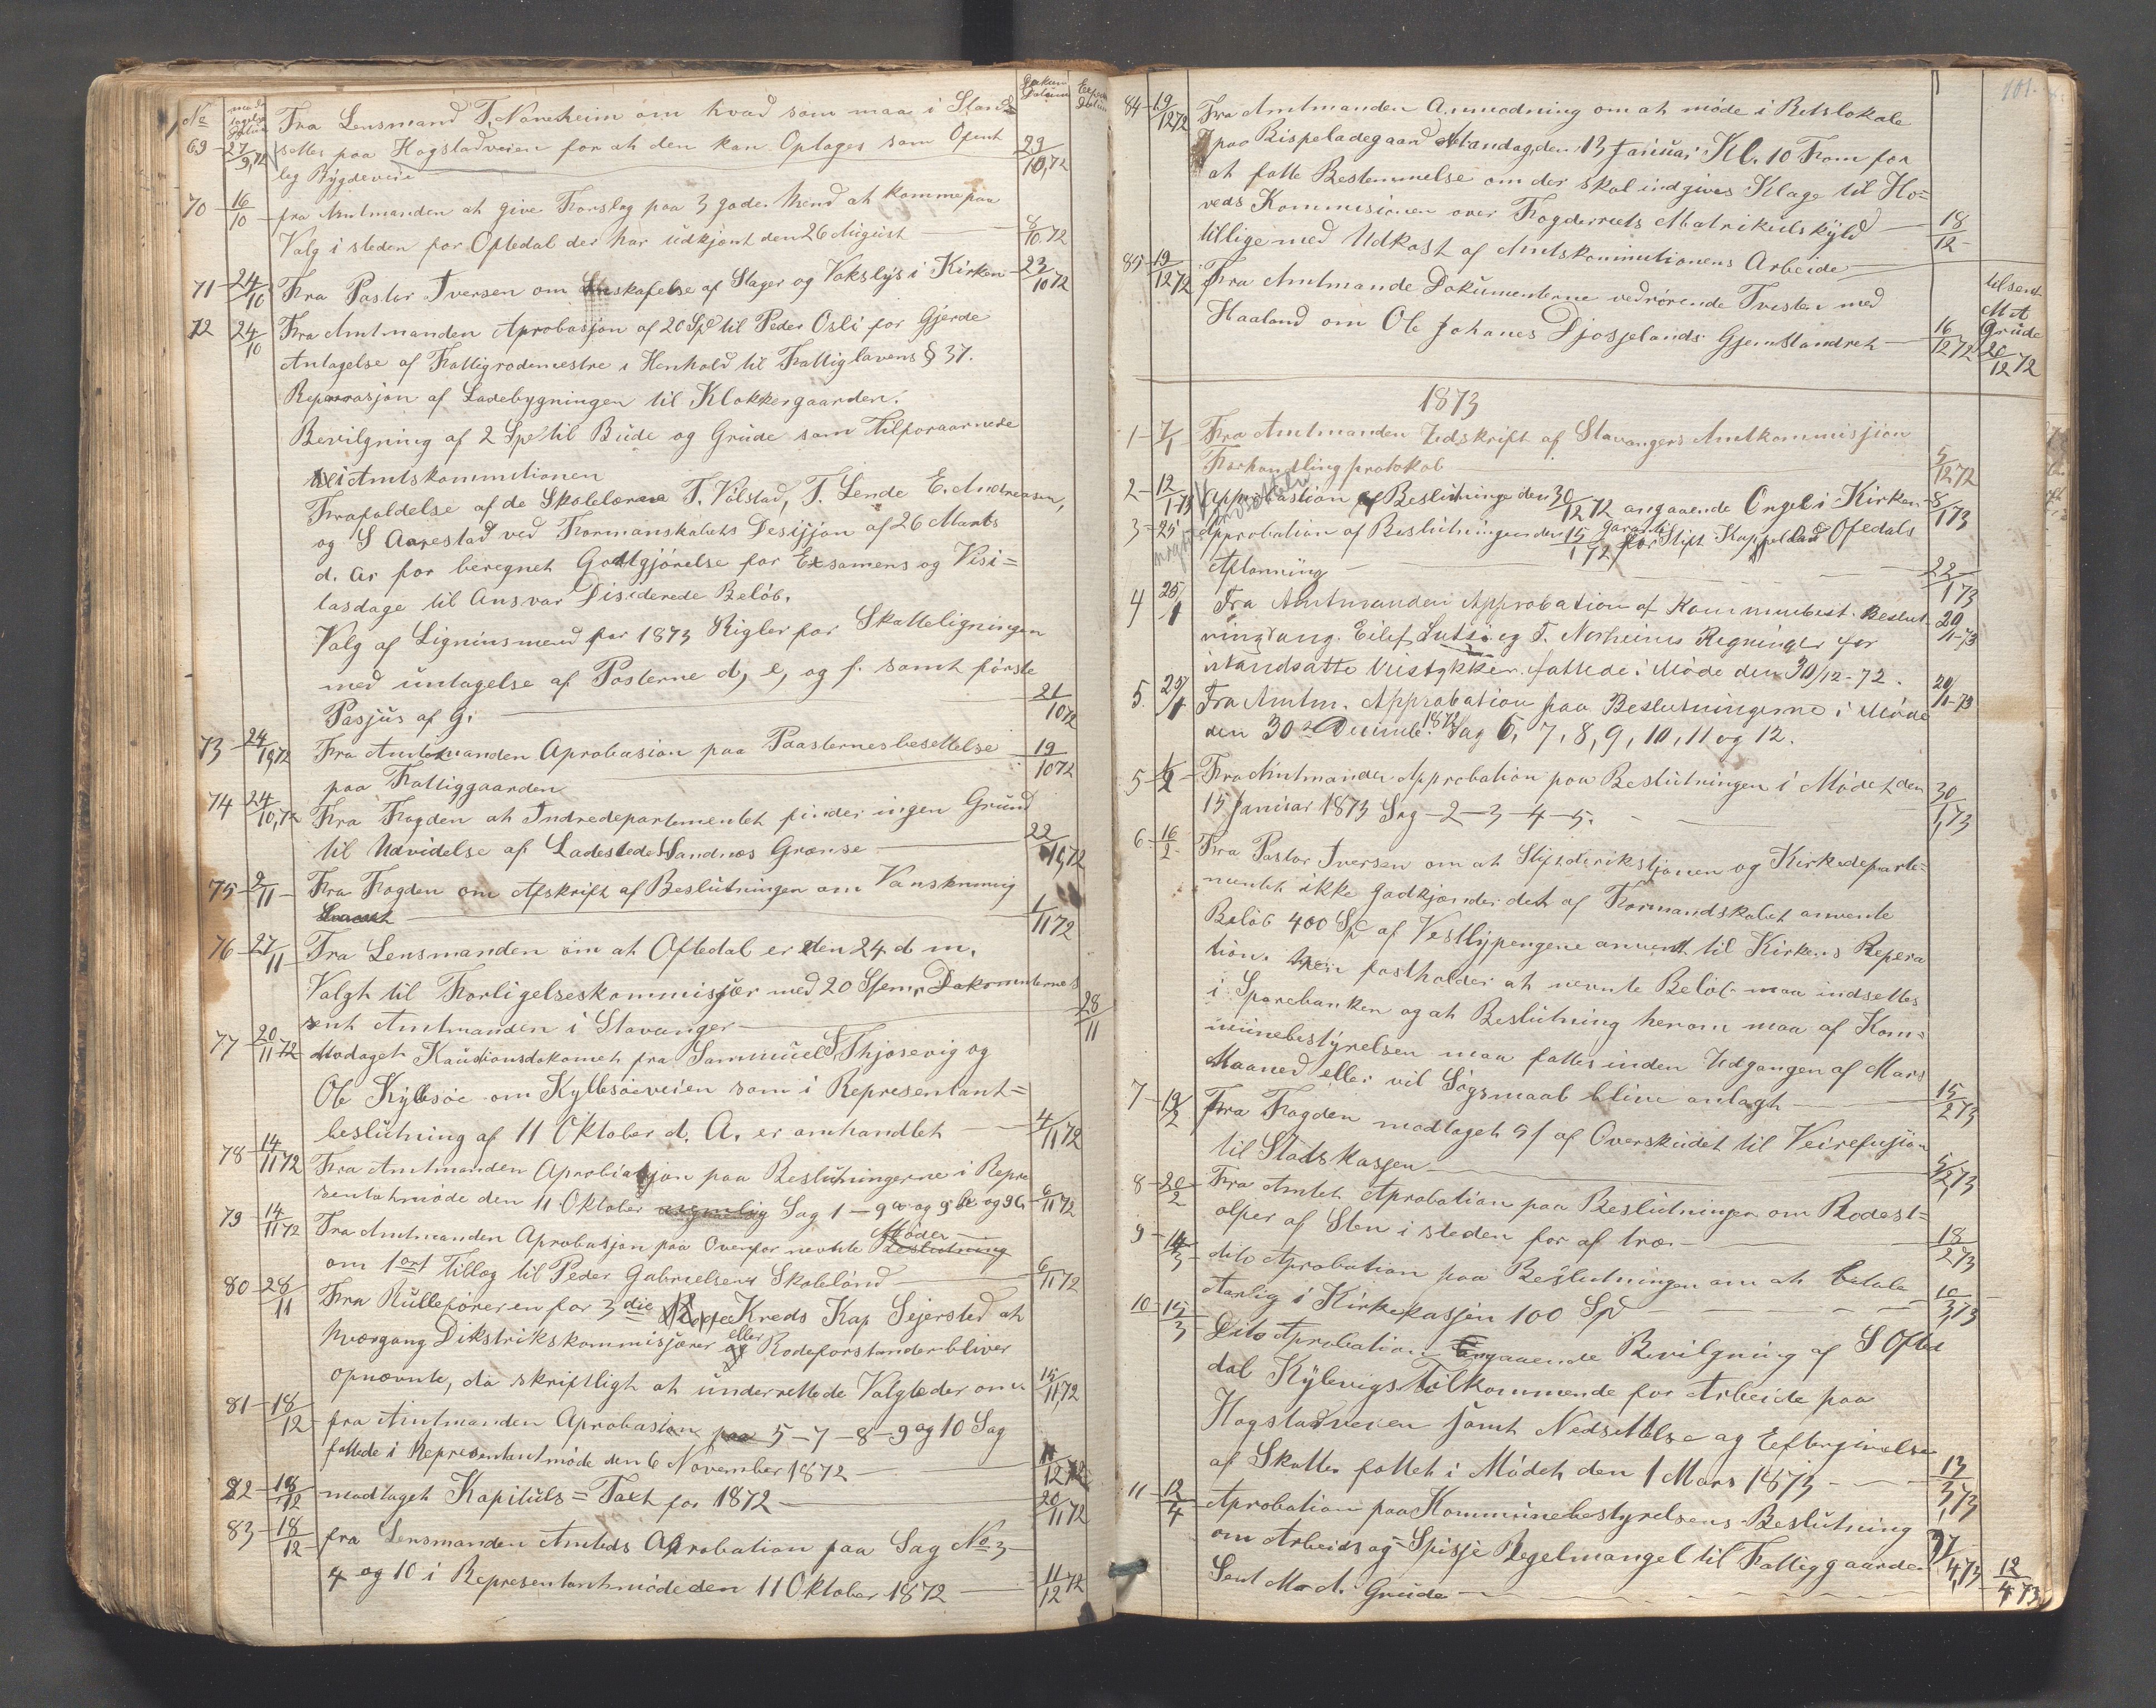 No modtagelse Datum Dokum Datum Exped Datum
69 27/9,72 Fra Lensmand T. Noreheim om hvad som maa i Stand=
settes paa Hogstadveien for at den kan Optages som Ofent 29/10,72
leg Bygdeveie
70 16/10 fra Amtmanden at give Forslag paa 3 gode Mend at komme paa
Valg i steden for Oftedal der har udkjent den 26 August 8/10.72
71 24/10 Fra Pastor Iversen om Anskafelse af Stager og Vokslys i Kirken 23/10 72
72 24/10 Fra Amtmanden Aprobasjon af 20 Spd til Peder Osli for Gjerde
Antagelse af Fattigrodemestre i Henhold til Fattiglavens § 37.
Reparrasjon af Ladebygningen til Klokkergaarden.
Bevilgning af 2 Spd til Bude og Grude som Tilforaarnede
i Amtskommitionen
Frafaldelse af de Skolelærere T. Vølstad, T. Lende E. Andreasen,
og S Aarestad ved Formanskabets Desisjon af 26 Marts
d. Ar for beregnet Godtgjørelse for Exsamens og Visi=
tasdage til Ansvar Disiderede Beløb.
Valg af Ligninsmend for 1873 Rigler for Skatteligningen
med untagelse af Posterne d, e, og f. samt første
Pasjus af g. 21/10 72
73 24/10,72 Fra Amtmanden Aprobasion paa Paasternes besettelse 19/10 72
paa Fattiggaarden
74 24/10,72 Fra Fogden at Indredepartementet finder ingen Grund
til Udvidelse af Ladestedet Sandnes Grænse 22/10,72
75 9/11 Fra Fogden om Afskrift af Beslutningen om Vanskning
1/11 72
76 27/11 Fra Lensmanden om at Oftedal er den 24 d. m.
Valgt til Forligelseskommisjær med 20 Stem. Dokomenternes
sent Amtmanden i Stavanger 28/11
77 20/11 72 Modaget Kautionsdokomet fra Sammuel S Thjosevig og
Ole Kyllesøe om Kyllesøeveien som i Representant=
beslutning af 11 Oktober d. A. er omhandlet 4/11,72
78 14/11 72 Fra Amtmanden Aprobiasjon paa Beslutningerne i Repre
sentatmøde den 11 Oktober Sag 1 – 9 a og 9 b og 9 c 6/11 72
79 14/11 72 Fra Amtmanden Aprobasjon paa Overfor nevnte Møder Beslutning
om 1 ort Tillæg til Peder Gabrielsens Skoleland 6/11 72
80 28/11 Fra Rulleføreren for 3die Kreds Kap Sejersted at
hvorgang Dikstrikskommisjærer eller Rodeforstander bliver
opnævnte, da skriftligt at underrettede Valgte der om 15/11,72
81 18/12 fra Amtmanden Aprobasion paa 5 – 7 – 8 – 9 og 10 Sag
fattede i Representantmøde den 6 November 1872 11/12 72
82 18/12 modtaget Kapituls = Taxt for 1872 20/11,72
83 18/12 fra Lensmanden Amteds Aprobation paa Sag No 3
4 og 10 i Representantmøde den 11 Oktober 1872 11/12 72
101.
84 19/12 72 Fra Amtmanden Anmodning om at møde i Retslokale
paa Bispeladegaard Mandag den 13 Januar Kl. 10 Form for
at fatte Bestemmelse om der skal indgives Klage til Ho=
veds Kommisionen over Fogderiets Matrikulskyld 18/12
tillige med Udkast af Amtskommitionens Arbeide
85 19/12 72 Fra Amtmande Dokumenterne vedrørende Tvisten med
Haaland om Ole Johanes Djosjelands Gjemstandret 16/12 72 tilsent M A Grude 20/12 72
1873
1 7/1 Fra Amtmanden Udskrift af Stavangers Amtkommisjion
Forhandling protokol 5/12 72
2 12/1 73 Approbastion af Beslutninge den 30/12 72 angaaende Orgel i Kirken 8/1 73
3 25 Approbation af Beslutningen den 15/1 72 garanti for Stift Kappellan Oftedals
Aflønning 22/1 73
4 25/1 Fra Amtmanden Approbation af Kommunebest. Beslut 20/1-73
ning ang. Eilef Lutsi og T. Norheims Regninger for
istandsatte Veistykker. fattede i Møde den 30/12-72.
5. 29/1 Fra Amtm. Approbation paa Beslutningerne i Møde 20/1-73
den 30te Decimb. 1872 Sag 6, 7, 8, 9, 10, 11 og 12.
5 1/2 Fra Amtmanden Approbation paa Beslutningen i Mødet den
15 Januar 1873 Sag – 2 – 3 – 4 – 5. 30/1,73
6 16/2 Fra Pastor Iversen om at Stiftderikstjonen og Kirkedeparte=
mentet ikke godkjender det af Formandskabet anvente
Beløb 400 Sp af Vestlypengene anvent til Kirkens Repera
tion. Men fastholder at nevnte Beløb maa indsettes
i Sparebanken og at Beslutning herom maa af Kom=
munebestyrelsen maa fattes inden Udgangen af Mars
Maaned eller vil Søgsmaal blive anlagt 15/2 73
7 19/2 Fra Fogden modtaget 5/ af Overskudet til Veirefusjon
til Stadskassen 5/2,73
8 20/2 Fra Amtet Aprobation paa Beslutningen om Rodest=
olper af Sten i steden for af træ 18/2 73
9 14/3 dito Aprobation paa Beslutningen om at betale
Aarlig i Kirkekassen 100 Sp 10/3,73
10 15/3 Dito Aprobation angaaende Bevilgning af S Ofte
dal Kylevigs Tilkommende for Arbeide paa
Hogstadveien samt Nedsettelse og Eftergivelse
af Skatter fattet i Mødet den 1 Mars 1873 13/3,73
11 12/4 Aprobation paa Kommunebestyrelsens Beslutning
om Arbeids og Spisje Regelmangel til Fattiggaarden 7/4,73
Sent M. A. Grude 12/4 73